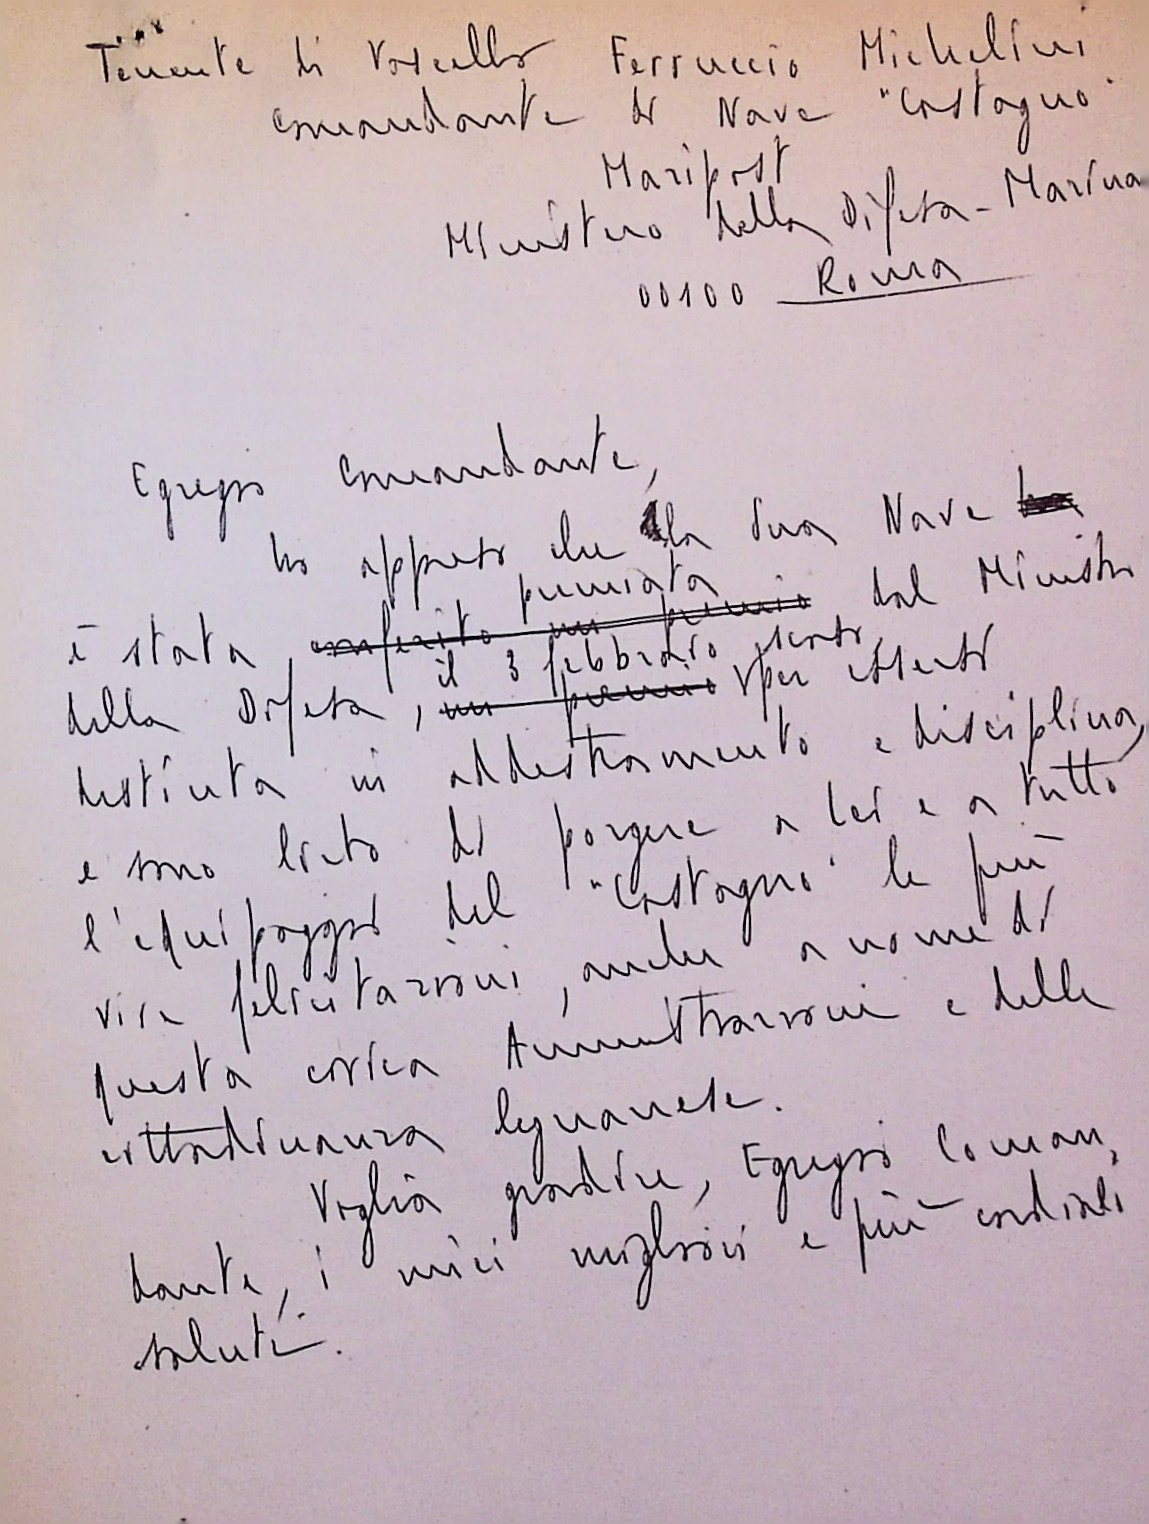 Tenente di Vascello Ferruccio Michelini
Comandante di Nave "Castagno"
Maripost
Ministero della Difesa - Marina
00100 Roma
Egregio Comandante,
ho appreso che la Sua Nave
premiata
è stata, conferito un premio dal Ministro
il 3 febbraio scorso,
della Difesa, un premio per essersi
distinta in addestramento e disciplina,
e sono lieto di porgere a Lei e a tutto
l'equipaggio del "Castagno" le più
vive felicitazioni, anche a nome di
questa civica Amministrazione e della
cittadinanza legnanese.
Voglia gradire, Egregio Coman,
dante, i miei migliori e più cordiali
saluti.